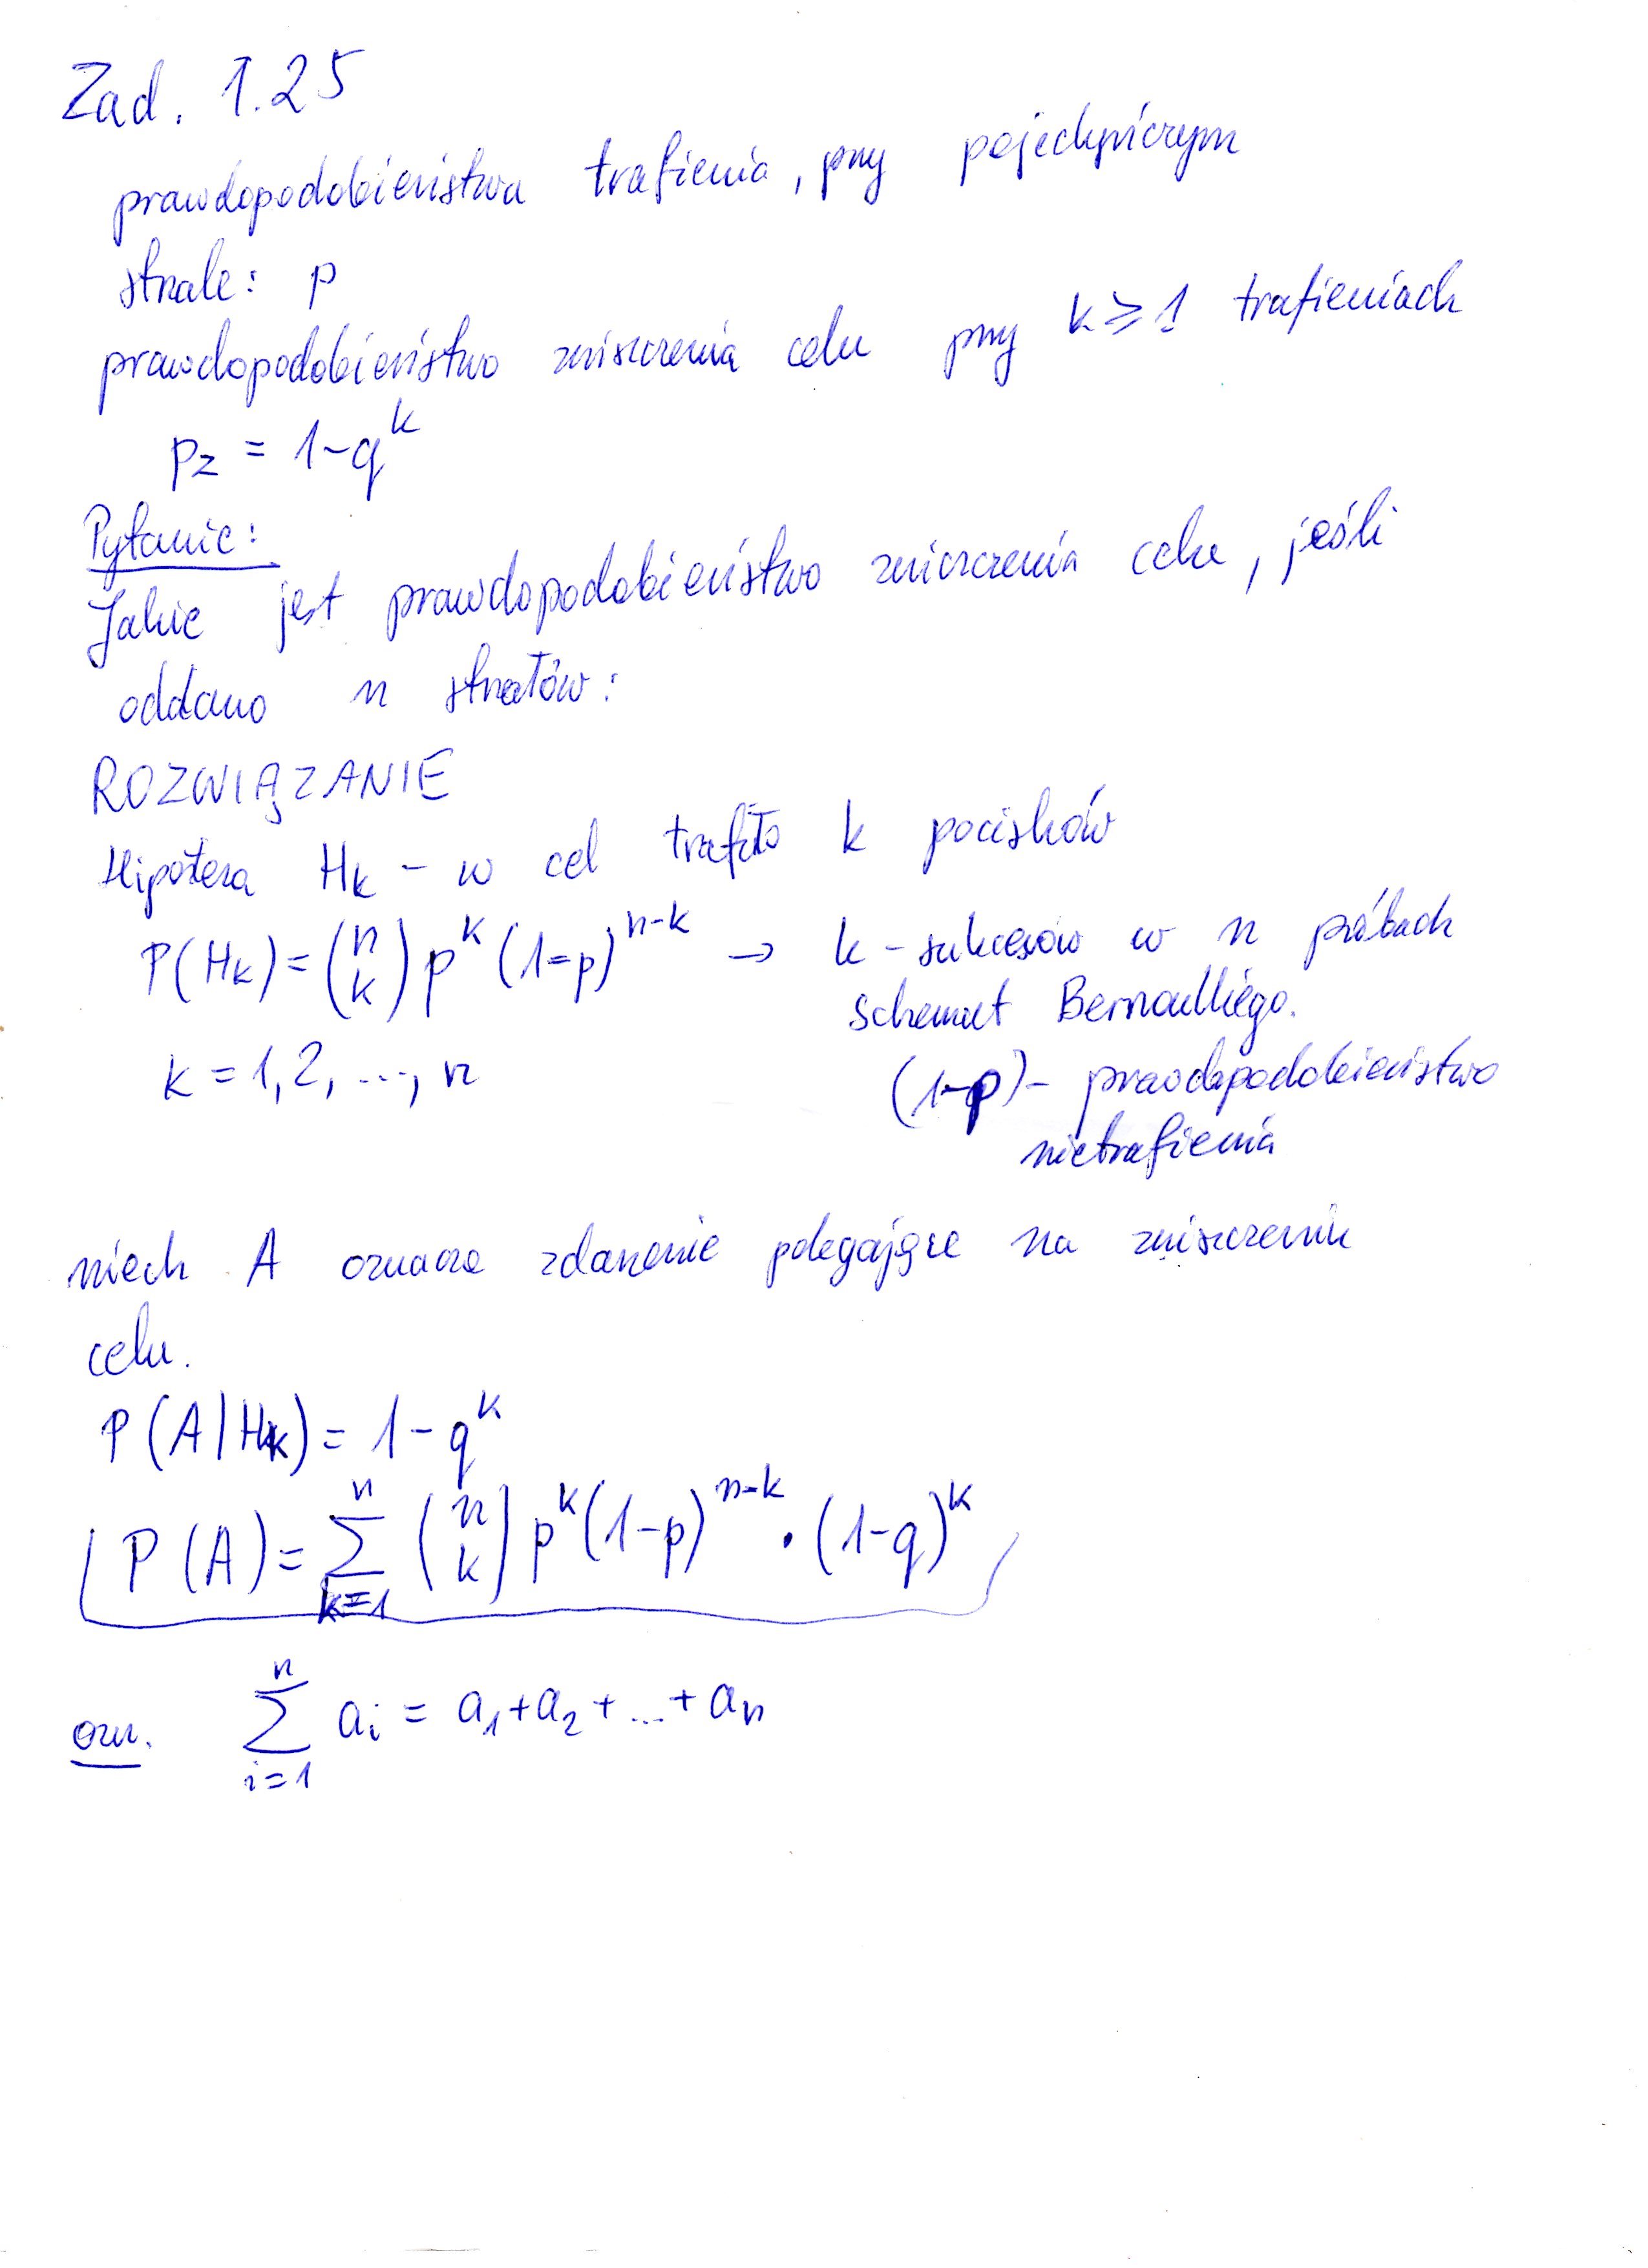 Zad. 1.25
prawdopodobieństwa trafienia, przy pojedyńczym
strzale: p
prawdopodobieństwo zniszczenia celu przy k ≥ 1 trafieniach
p_z = 1-q^k
Pytanie:
Jakie jest prawdopodobieństwo zniszczenia celu, jeśli
oddano n strzałów:
ROZWIĄZANIE
Hipoteza H_k - w cel trafiło k pocisków
P(H_k) = \binom{n}{k} p^k (1-p)^{n-k} → k - sukcesów w n próbach
schemat Bernoulliego.
k = 1, 2, ..., n
(1-p) - prawdopodobieństwo
nietrafienia
niech A oznacza zdarzenie polegające na zniszczeniu
celu.
P(A|H_k) = 1-q^k
P(A) = \sum_{k=1}^{n} \binom{n}{k} p^k (1-p)^{n-k} · (1-q)^k
ozn. \sum_{i=1}^{n} a_i = a_1 + a_2 + ... + a_n